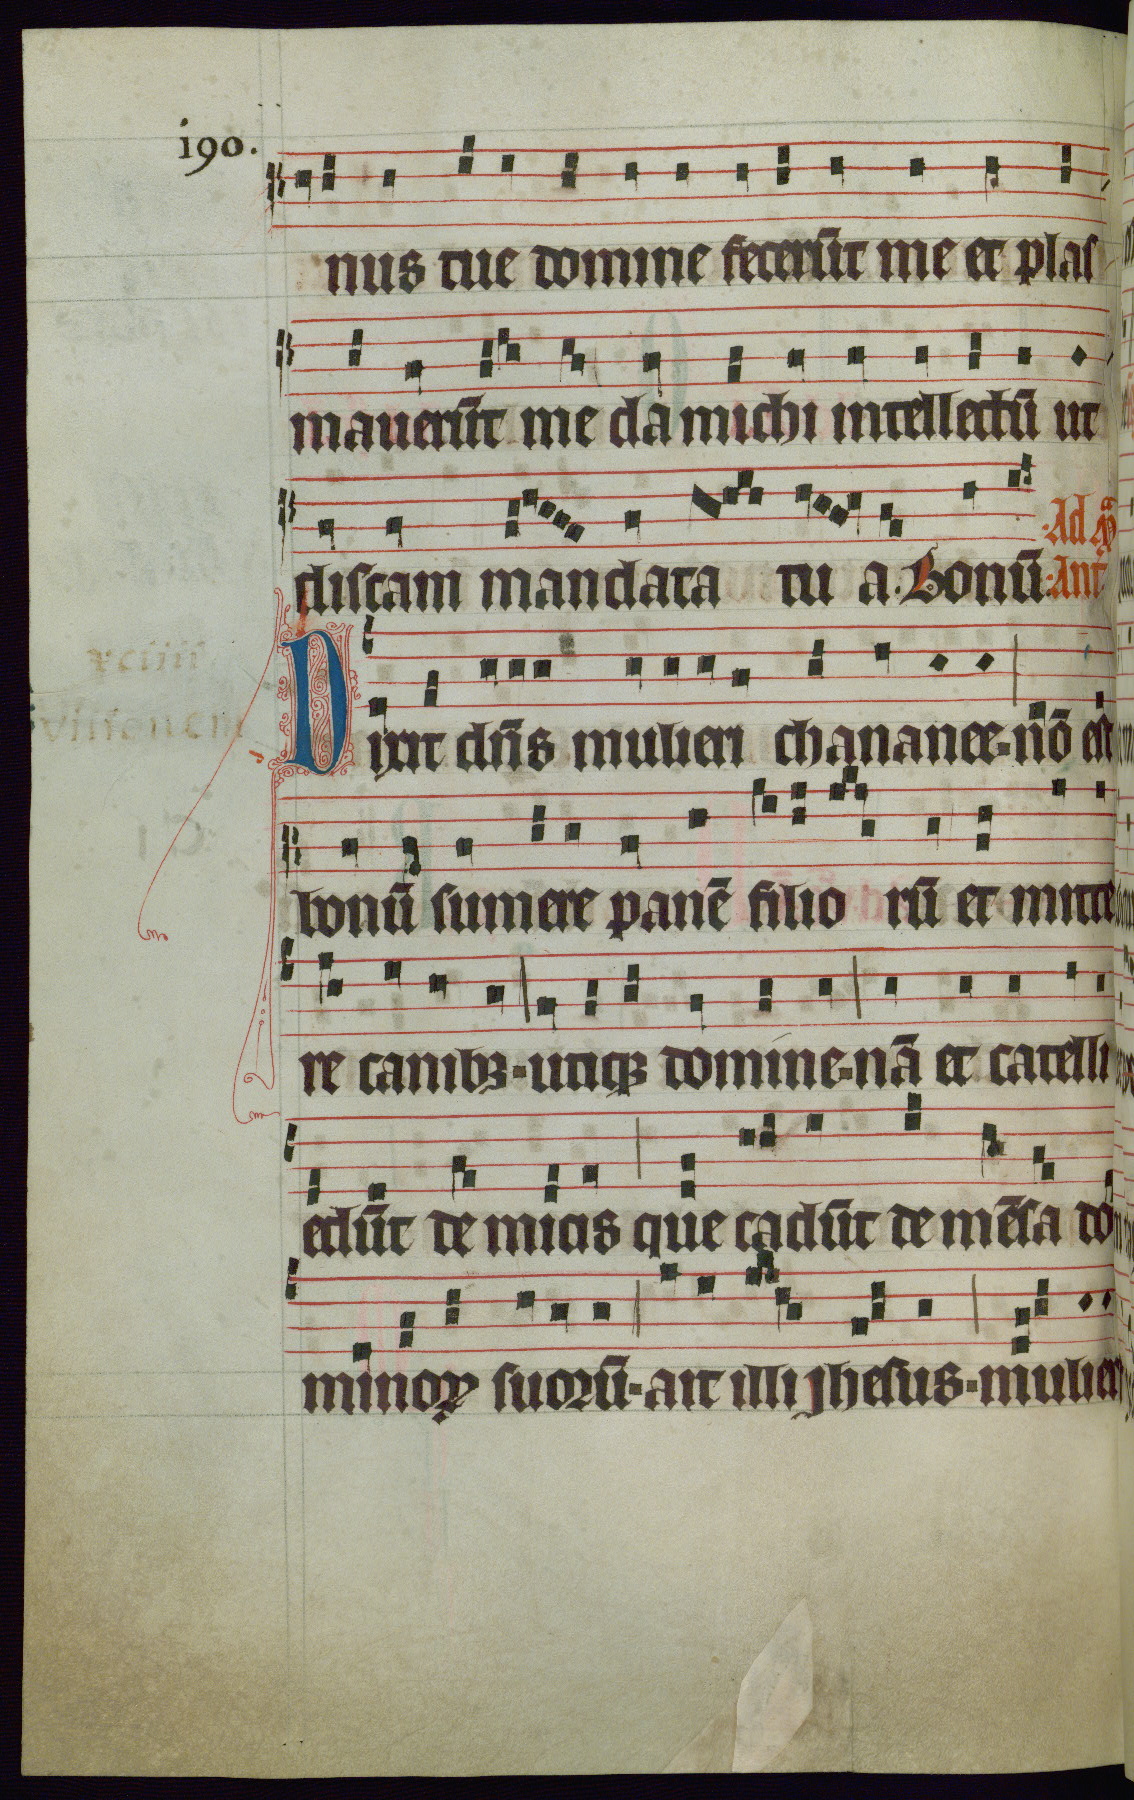 190.
nus tue domine fecerūt me et plas
mauerūt me da michi intellectū ut
Ad
discam mandata tu a. Bonū. Ant
Dixit dn̄s mulieri chananee. nō est
bonū sumere panē filio rū et mitte
re canibꝫ. utiqꝫ domine. nā et catelli
edūt de micis que cadūt de mēsa do
minoꝝ suorū. ait illi jhesus. mulier